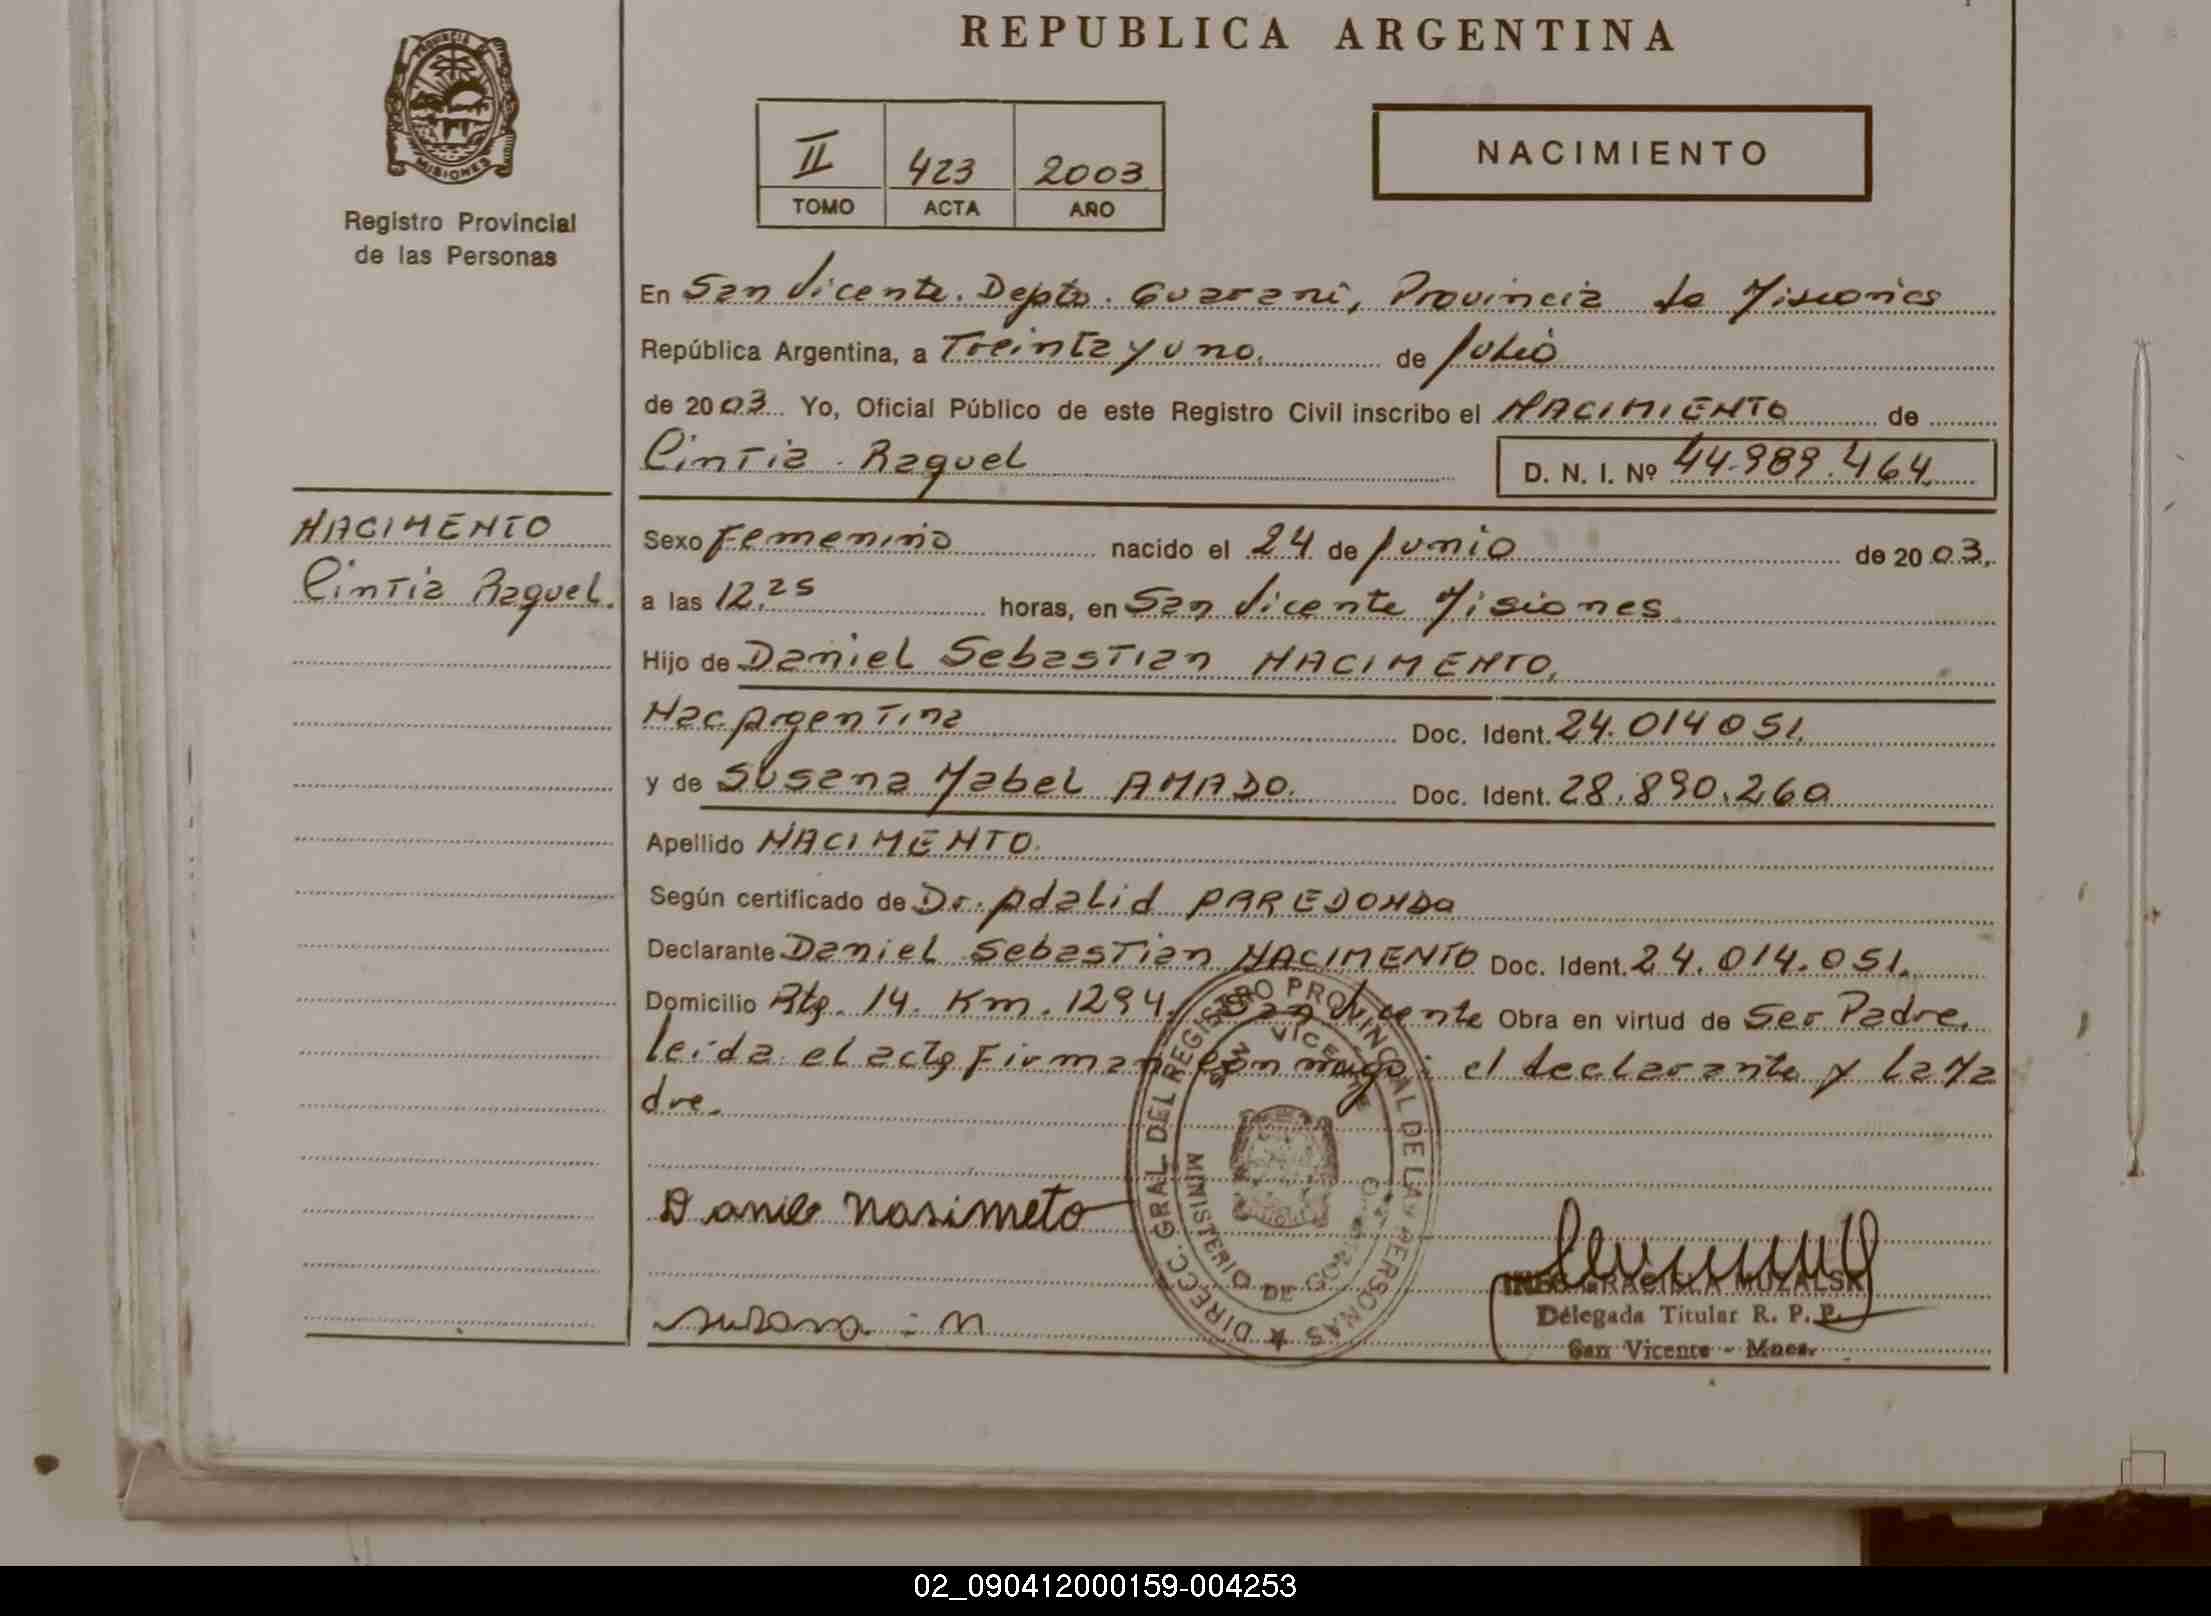 REPUBLICA ARGENTINA
PROVINCIA
MISIONES
Registro Provincial
de las Personas
II 423 2003
TOMO ACTA AÑO
NACIMIENTO
En San Vicente. Depto. Guarani, Provincia de Misiones
República Argentina, a Treinta y uno. de Julio
de 2003 Yo, Oficial Público de este Registro Civil inscribo el NACIMIENTO de
Cintia Raquel
D. N. I. Nº 44.989.464
NACIMENTO
Cintia Raquel.
Sexo Femenino nacido el 24 de Junio de 2003.
a las 12.25 horas, en San Vicente Misiones
Hijo de Daniel Sebastian NACIMENTO.
Nac Argentina Doc. Ident. 24.014051.
y de Susana Mabel AMADO. Doc. Ident. 28.890.260
Apellido NACIMENTO.
Según certificado de Dr. Adalid PAREDONDO
Declarante Daniel Sebastian NACIMENTO Doc. Ident. 24.014.051.
Domicilio Rta. 14. Km. 1294. San Vicente Obra en virtud de Ser Padre.
leida el acta Firman con migo: el declarante y la Ma
dre.
DIRECC. GRAL DEL REGISTRO PROVINCIAL DE LAS PERSONAS
SAN VICENTE
MINISTERIO DE GOBIERNO
Daniel Nasimeto
susana - n
GRACIELA
Delegada Titular R. P. P.
San Vicente - Mnes.
02_090412000159-004253